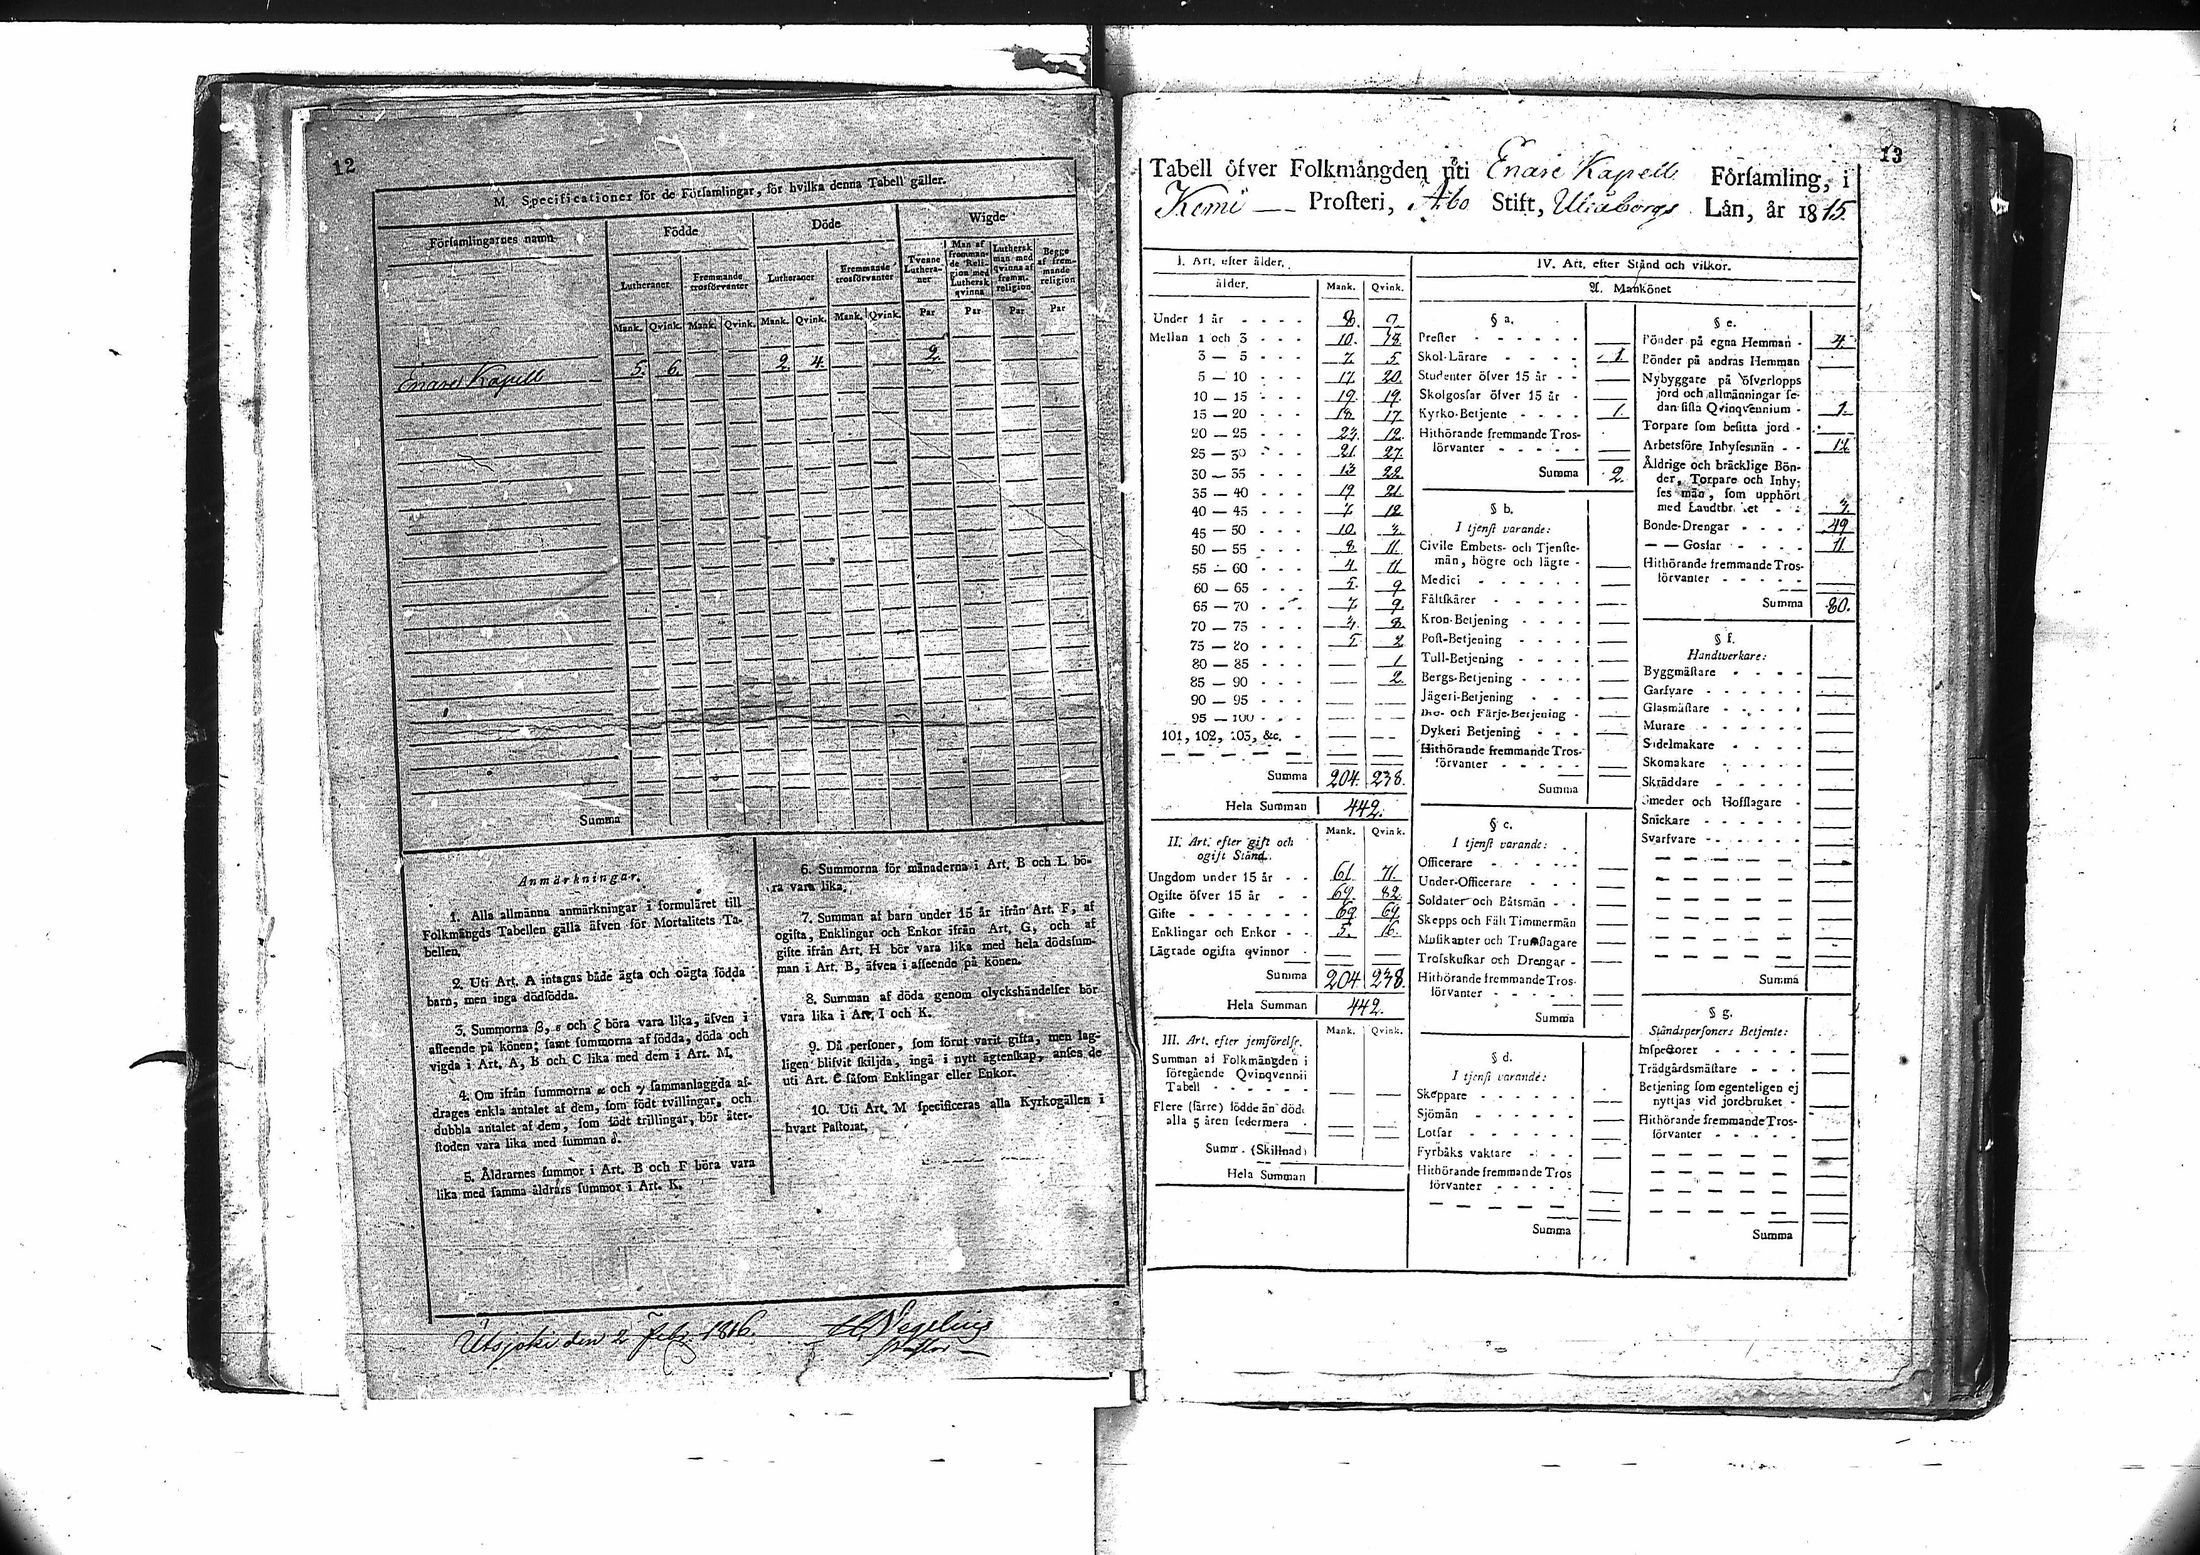 12
M. Specificationer för de Församlingar, för hvilka denna Tabell gäller.
Församlingarnes namn
Födde
Döde
Wigde
Lutheraner
Fremmande trosförvanter
Lutheraner
Fremmande trosförvanter
Tvenne Lutheraner
Man af fremmande Religion med Luthersk qvinna
Luthersk man med qvinna af fremm. religion
Begge af fremmande religion
Mank. Qvink. Mank. Qvink. Mank. Qvink. Mank. Qvink. Par Par Par Par
Enare Kapell 5. 6. 2. 4. 2.
Summa
Anmärkningar.
1. Alla allmänna anmärkningar i formuläret till
Folkmängds Tabellen gälla äfven för Mortalitets Ta-
bellen.
2. Uti Art. A intagas både ägta och oägta födda
barn, men inga dödfödda.
3. Summorna β, ε och ζ böra vara lika, äfven i
afseende på könen; samt summorna af födda, döda och
vigda i Art. A, B och C lika med dem i Art. M.
4. Om ifrån summorna α och γ sammanlaggda af-
drages enkla antalet af dem, som födt tvillingar, och
dubbla antalet af dem, som födt trillingar, bör åter-
stoden vara lika med summan δ.
5. Åldrarnes summor i Art. B och F böra vara
lika med samma åldrars summor i Art. K.
6. Summorna för månaderna i Art. B och L bö-
ra vara lika.
7. Summan af barn under 15 år ifrån Art. F, af
ogifta, Enklingar och Enkor ifrån Art. G, och af
gifte ifrån Art. H bör vara lika med hela dödssum-
man i Art. B, äfven i afseende på könen.
8. Summan af döda genom olyckshändelser bör
vara lika i Art. I och K.
9. Då personer, som förut varit gifta, men lag-
ligen blifvit skiljda, ingå i nytt ägtenskap, anses de
uti Art. C såsom Enklingar eller Enkor.
10. Uti Art. M specificeras alla Kyrkogällen i
hvart Pastorat.
Utsjoki den 2 Febr. 1816.
Pastor
13
Tabell öfver Folkmängden uti Enare Kapell Församling, i
Kemi Prosteri, Åbo Stift, Uleåborgs Län, år 1815.
I. Art. efter ålder.
ålder. Mank. Qvink.
Under 1 år 8. 7.
Mellan 1 och 3 10. 18.
3 — 5 7. 5.
5 — 10 17. 20.
10 — 15 19. 19.
15 — 20 18. 17.
20 — 25 23. 12.
25 — 30 21. 27.
30 — 35 13. 22.
35 — 40 19. 21.
40 — 45 7. 12.
45 — 50 10. 3.
50 — 55 8. 11.
55 — 60 4. 11.
60 — 65 5. 9.
65 — 70 7. 9.
70 — 75 3. 8.
75 — 80 5. 2.
80 — 85 — 1.
85 — 90 — 2.
90 — 95 — —
95 — 100 — —
101, 102, 103, &c. — —
Summa 204. 238.
Hela Summan 442.
II. Art. efter gift och
ogift Stånd.
Mank. Qvink.
Ungdom under 15 år 61. 71.
Ogifte öfver 15 år 69. 82.
Gifte 69. 69.
Enklingar och Enkor 5. 16.
Lägrade ogifta qvinnor — —
Summa 204. 238.
Hela Summan 442.
III. Art. efter jemförelse.
Mank. Qvink.
Summan af Folkmängden i
föregående Qvinqvennii
Tabell
Flere (färre) födde än döde
alla 5 åren sedermera
Summ. (Skillnad)
Hela Summan
IV. Art. efter Stånd och vilkor.
A. Mankönet
§ a.
Prester —
Skol-Lärare 1.
Studenter öfver 15 år —
Skolgossar öfver 15 år —
Kyrko-Betjente 1.
Hithörande fremmande Tros-
förvanter —
Summa 2.
§ b.
I tjenst varande:
Civile Embets- och Tjenste-
män, högre och lägre
Medici
Fältskärer
Kron-Betjening
Post-Betjening
Tull-Betjening
Bergs-Betjening
Jägeri-Betjening
Bro- och Färje-Betjening
Dykeri Betjening
Hithörande fremmande Tros-
förvanter
Summa
§ c.
I tjenst varande:
Officerare
Under-Officerare
Soldater och Båtsmän
Skepps och Fält Timmermän
Musikanter och Trumslagare
Trosskuskar och Drengar
Hithörande fremmande Tros-
förvanter
Summa
§ d.
I tjenst varande:
Skeppare
Sjömän
Lotsar
Fyrbåks vaktare
Hithörande fremmande Tros
förvanter
Summa
§ e.
Bönder på egna Hemman 4.
Bönder på andras Hemman
Nybyggare på öfverlopps
jord och allmänningar se-
dan sista Qvinqvennium 1.
Torpare som besitta jord
Arbetsföre Inhysesmän 12.
Åldrige och bräcklige Bön-
der, Torpare och Inhy-
ses män, som upphört
med Landtbruket 3.
Bonde-Drengar 49.
— — Gossar 11.
Hithörande fremmande Tros-
förvanter
Summa 80.
§ f.
Handtverkare:
Byggmästare
Garfvare
Glasmästare
Murare
Sadelmakare
Skomakare
Skräddare
Smeder och Hofslagare
Snickare
Svarfvare
Summa
§ g.
Ståndspersoners Betjente:
Inspectorer
Trädgårdsmästare
Betjening som egenteligen ej
nyttjas vid jordbruket
Hithörande fremmande Tros-
förvanter
Summa